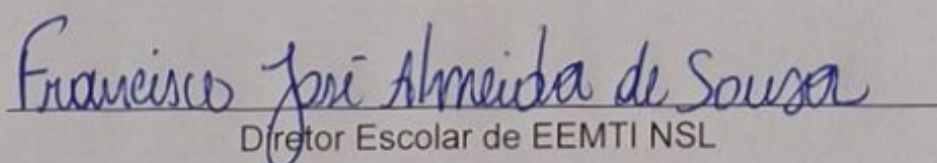 Francisco José Almeida de Sousa
Diretor Escolar de EEMTI NSL